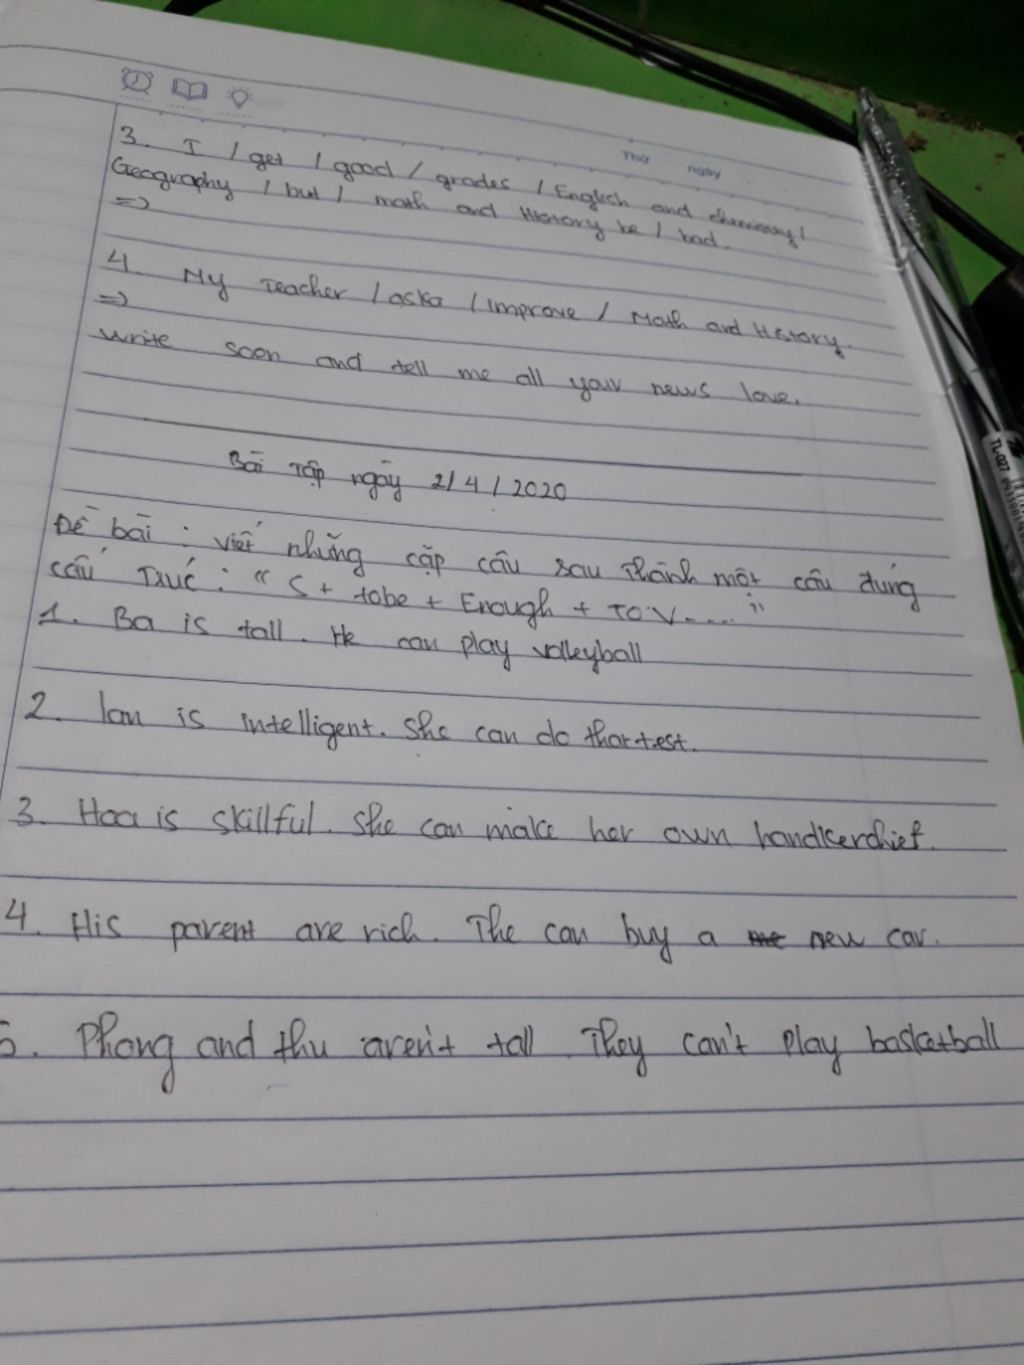 Thứ ngày
3. I / get / good / grades / English and chemistry /
Geography / but / math and History be / bad.
=>
4. My Teacher / asks / improve / Math and History.
=>
Write soon and tell me all your news love.
Bài Tập ngày 2/4/2020
Đề bài : viết những cặp câu sau Thành một câu dùng
cấu Trúc : " S + tobe + Enough + TO.V.... "
1. Ba is tall. He can play volleyball
2. lan is intelligent. She can do that test.
3. Hoa is skillful. She can make her own handkerchief.
4. His parent are rich. The can buy a new car.
5. Phong and thu aren't tall. They can't play basketball
TL-027